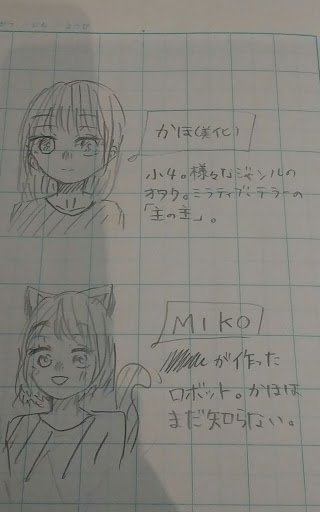 かほ(美化)
小4。様々なジャンルの
オタク。ミラティブ・テラーの
「主の主」。
MIKO
が作った
ロボット。かほは
まだ知らない。